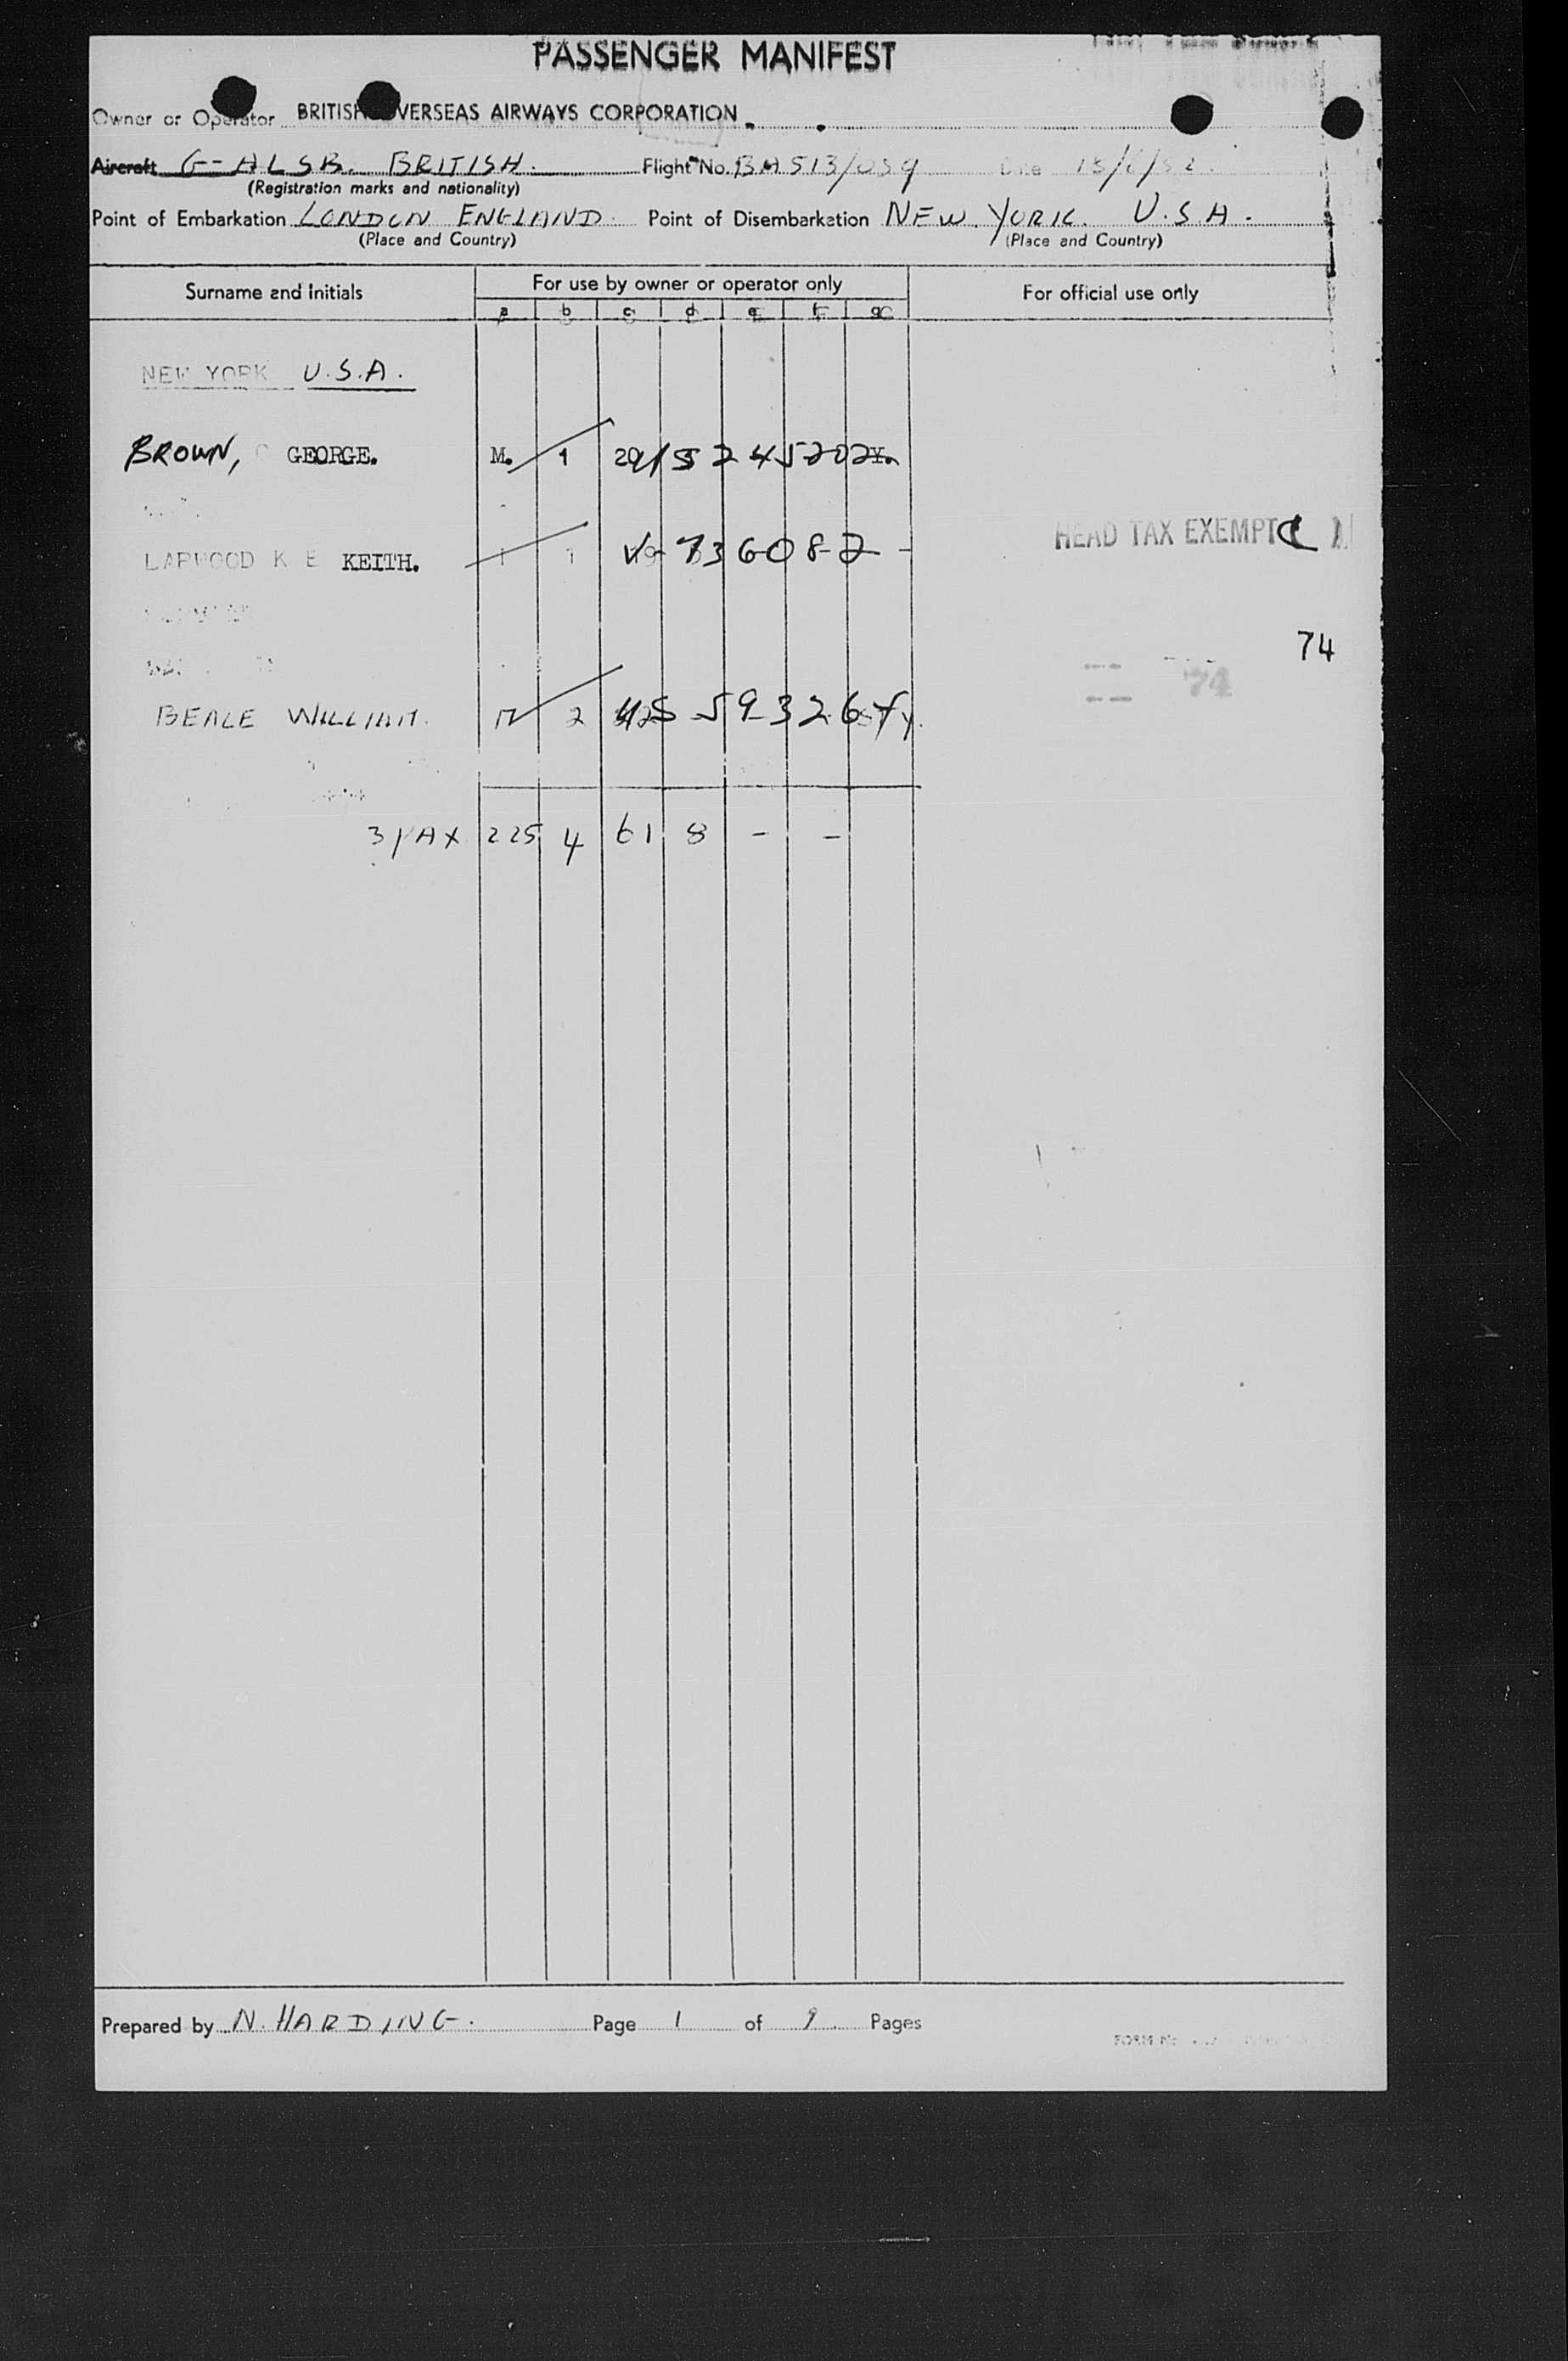 PASSENGER MANIFEST
Owner or Operator BRITISH OVERSEAS AIRWAYS CORPORATION
Aircraft G-ALSB. BRITISH. Flight No. BA 513/039 Date 15/6/52.
(Registration marks and nationality)
Point of Embarkation LONDON ENGLAND. Point of Disembarkation NEW YORK. U.S.A.
(Place and Country) (Place and Country)
For use by owner or operator only
Surname and Initials For official use only
a b c d e f g
NEW YORK U.S.A.
BROWN, GEORGE. M. 1
HEAD TAX EXEMPT
LARWOOD K E KEITH. 1 V-736082
74
74
BEALE WILLIAM. M 2
3 PAX 225 4 61 8 - -
Prepared by N. HARDING. Page 1 of 9. Pages
FORM No